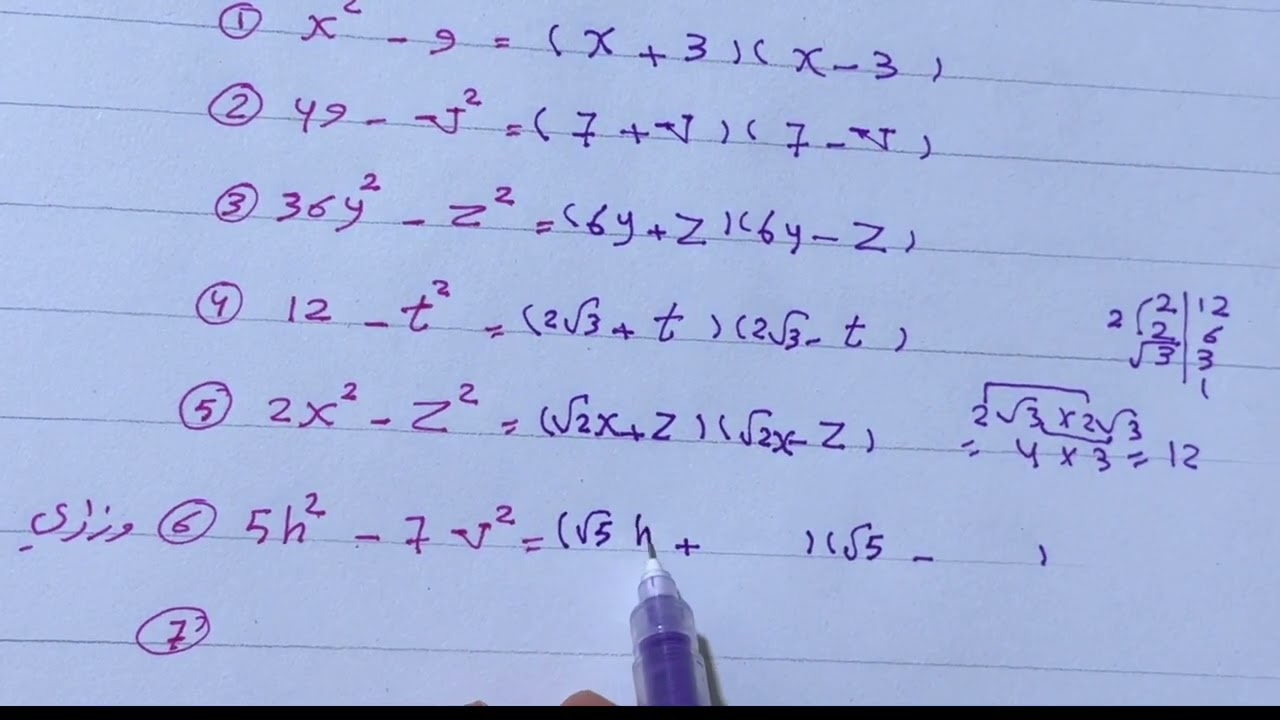 ① x² - 9 = (x + 3)(x - 3)
② 49 - v² = (7 + v)(7 - v)
③ 36y² - z² = (6y + z)(6y - z)
④ 12 - t² = (2√3 + t)(2√3 - t)
2 | 12
2 | 6
3 | 3
1
2
√3
⑤ 2x² - z² = (√2x + z)(√2x - z)
2√3 × 2√3
= 4 × 3 = 12
وزاري ⑥ 5h² - 7v² = (√5 h + )(√5 - )
⑦